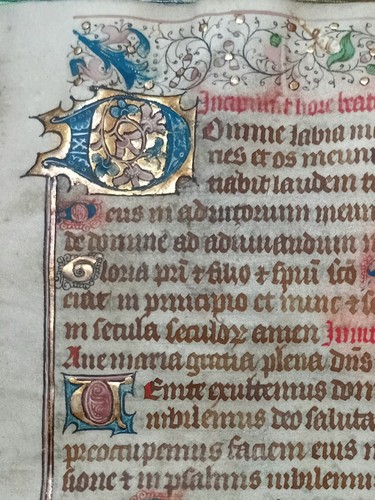 Incipiunt hore beat
Domine labia me
ries et os meum
tiabit laudem t
Deus in adiutorium meum
de domine ad adiuuandum m
Gloria pr̄i ⁊ filio ⁊ sp̄ui sc̄o
cut in principio et nunc ⁊ se
in secula seculoꝝ amen Inui
Aue maria gratia plena dn̄s
Uenite exultemus dom
iubilemus deo saluta
preocupemus faciem eius
sione ⁊ in psalmis iubilemus